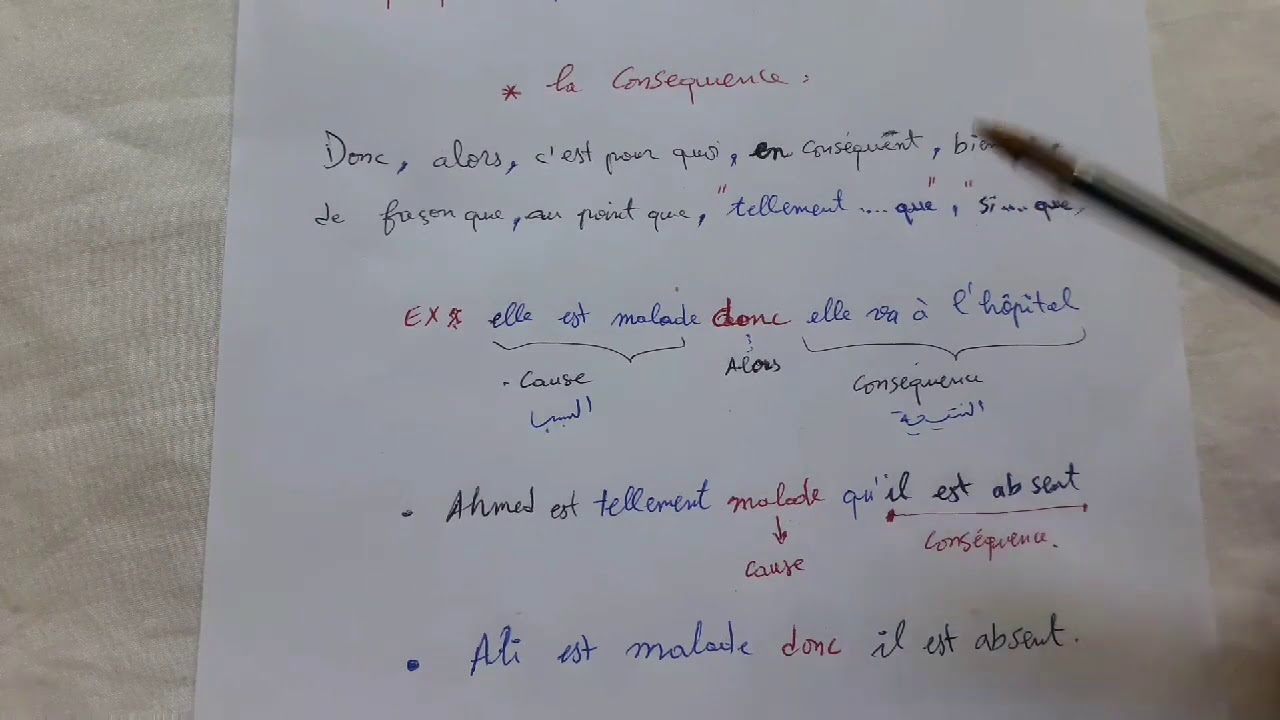 * la Consequence :
Donc, alors, c'est pour quoi, en conséquent,
de façon que, au point que, "tellement .... que", "si... que,
EX: elle est malade donc elle va à l'hôpital
Alors
- Cause
Conséquence
السبب
النتيجة
• Ahmed est tellement malade qu'il est absent
Cause
Conséquence.
• Ali est malade donc il est absent.